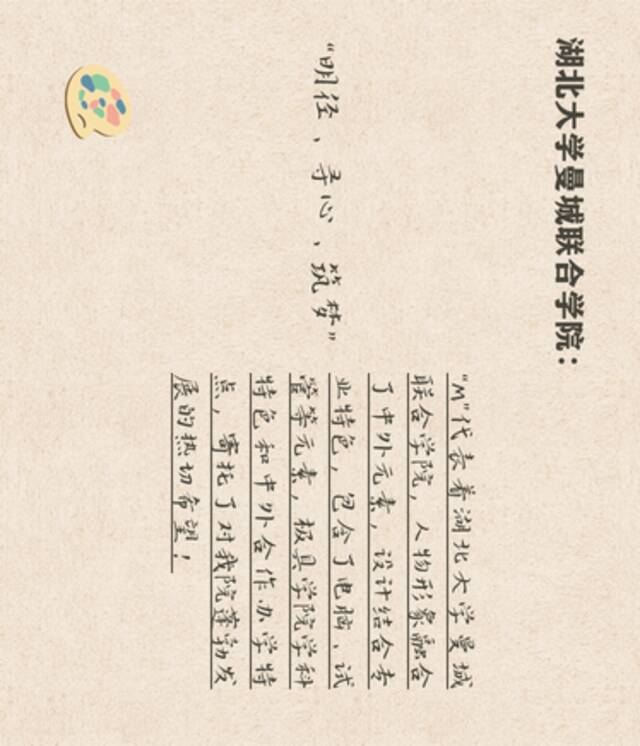 湖北大学曼城联合学院：
“明径、寻心、筑梦”
“M”代表着湖北大学曼城
联合学院，人物形象融合
了中外元素，设计结合专
业特色，包含了电脑、试
管等元素，极具学院学科
特色和中外合作办学特
点，寄托了对我院蓬勃发
展的热切希望！